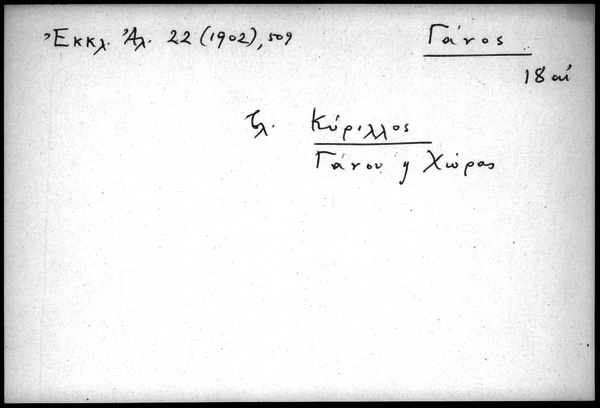 Ἐκκλ. Ἀλ. 22 (1902), 509
Γάνος
18 αἰ
Κύριλλος
Γάνου ἡ Χώρας